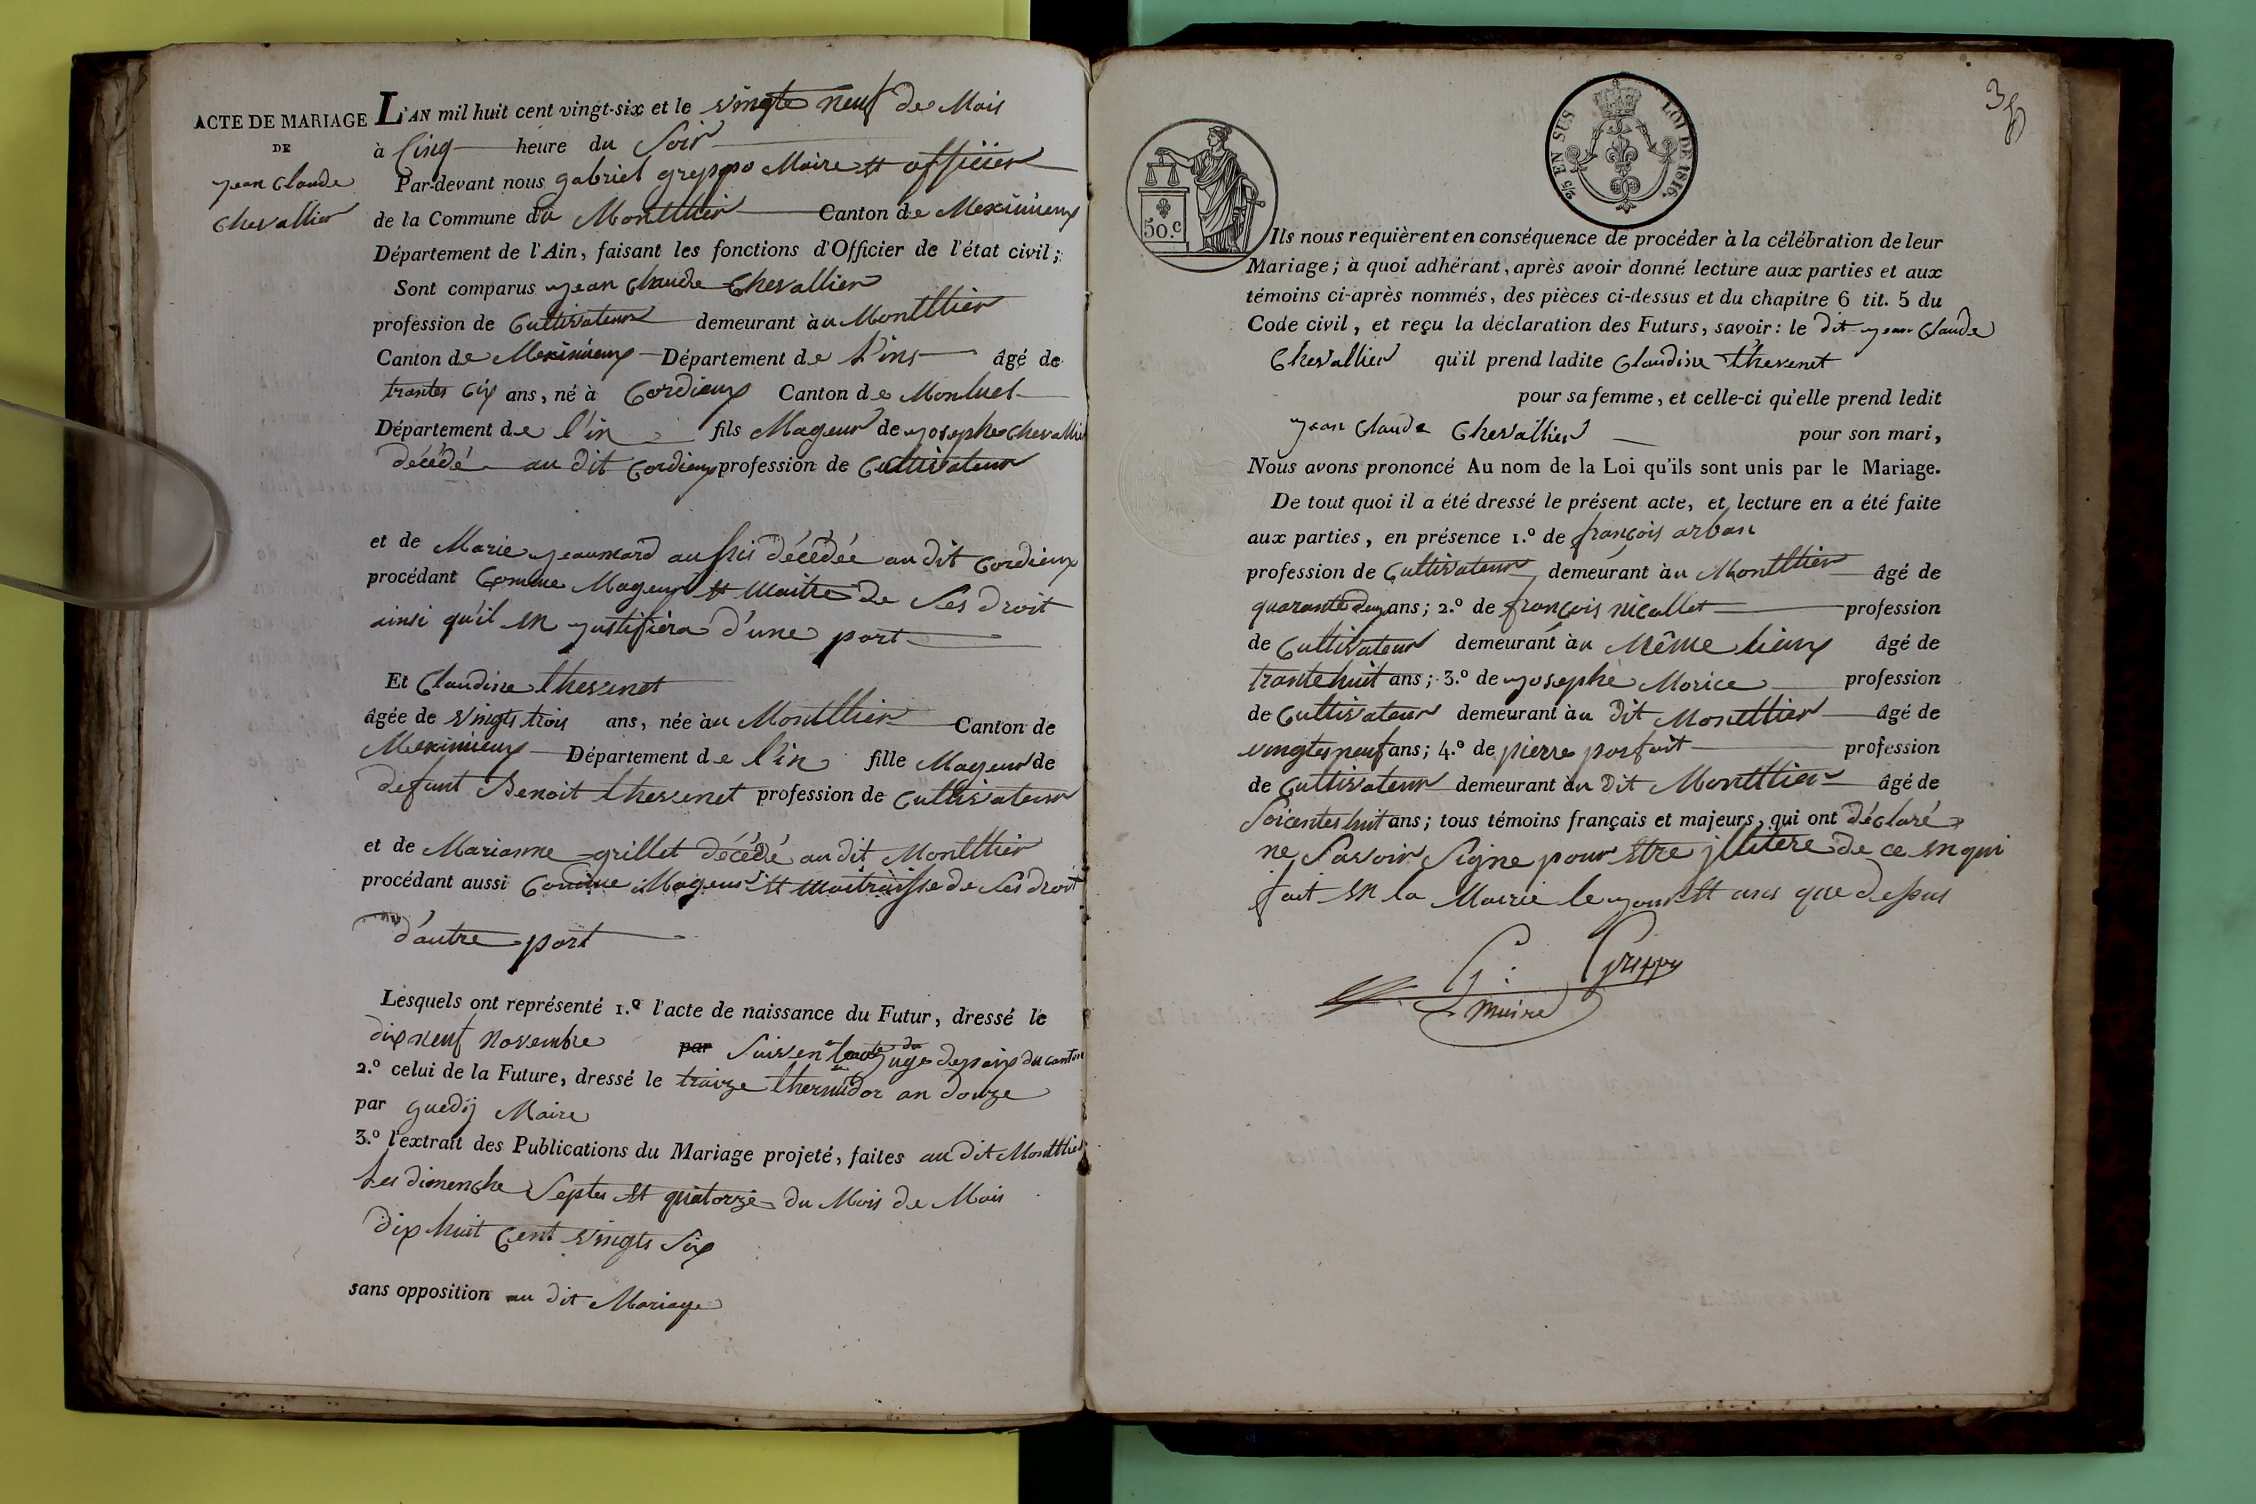 ACTE DE MARIAGE
DE
jean Claude
Chevallier
L'AN mil huit cent vingt-six et le vingte neuf de Mais
à Cinq heure du Soir
Par-devant nous gabriel greppo Maire et officier
de la Commune du Montllier Canton de Meximieux
Département de l'Ain, faisant les fonctions d'Officier de l'état civil;
Sont comparus jean Claude Chevallier
profession de Cultivateur demeurant àu Montllier
Canton de Meximieux Département de l'ins âgé de
trantes Cix ans, né à Cordieux Canton de Monluel
Département de l'in fils Mageur de josephe Chevallier
décédé au dit Cordieux profession de Cultivateur
et de Marie jeaumard aussis décédée au dit Cordieux
procédant Comme Mageur et Maitre de Ses droit
ainsi qu'il en justifiera d'une part
Et Claudine thevenet
âgée de vingts trois ans, née àu Montllier Canton de
Meximieux Département de l'in fille Mageur de
defunt Benoit thevenet profession de Cultivateur
et de Marianne grillet décédé au dit Montllier
procédant aussi Comme Mageur et maitraisse de Ses droit
d'autre part
Lesquels ont représenté 1.º l'acte de naissance du Futur, dressé le
dix neuf novembre par Suiven l'acte du juge de paix du canton
2.º celui de la Future, dressé le traize thermidor an douze
par guedij Maire
3.º l'extrait des Publications du Mariage projeté, faites au dit Montllier
Les dimenche Septes et quatorze du Mois de Mais
dix huit Cent vingts Six
sans opposition au dit Mariage
38
2/5 EN SUS
LOI DE 1816.
50.c
Ils nous requièrent en conséquence de procéder à la célébration de leur
Mariage; à quoi adhérant, après avoir donné lecture aux parties et aux
témoins ci-après nommés, des pièces ci-dessus et du chapitre 6 tit. 5 du
Code civil, et reçu la déclaration des Futurs, savoir: le dit jean Claude
Chevallier qu'il prend ladite Claudine thevenet
pour sa femme, et celle-ci qu'elle prend ledit
jean Claude Chevallier pour son mari,
Nous avons prononcé Au nom de la Loi qu'ils sont unis par le Mariage.
De tout quoi il a été dressé le présent acte, et lecture en a été faite
aux parties, en présence 1.º de françois arban
profession de Cultivateur demeurant àu Montllier âgé de
quarante deux ans; 2.º de françois nicollet profession
de Cultivateur demeurant àu Même lieux âgé de
trante huit ans; 3.º de josephe Morice profession
de Cultivateur demeurant àu dit Montllier âgé de
vingtes neuf ans; 4.º de pierre parfait profession
de Cultivateur demeurant àu dit Montllier âgé de
Soicentes huit ans; tous témoins français et majeurs, qui ont déclaré
ne Savoir Signe pour etre jllitere de ce enqui
fait en la Mairie le jour et ans que dessus
G: Greppo
maire